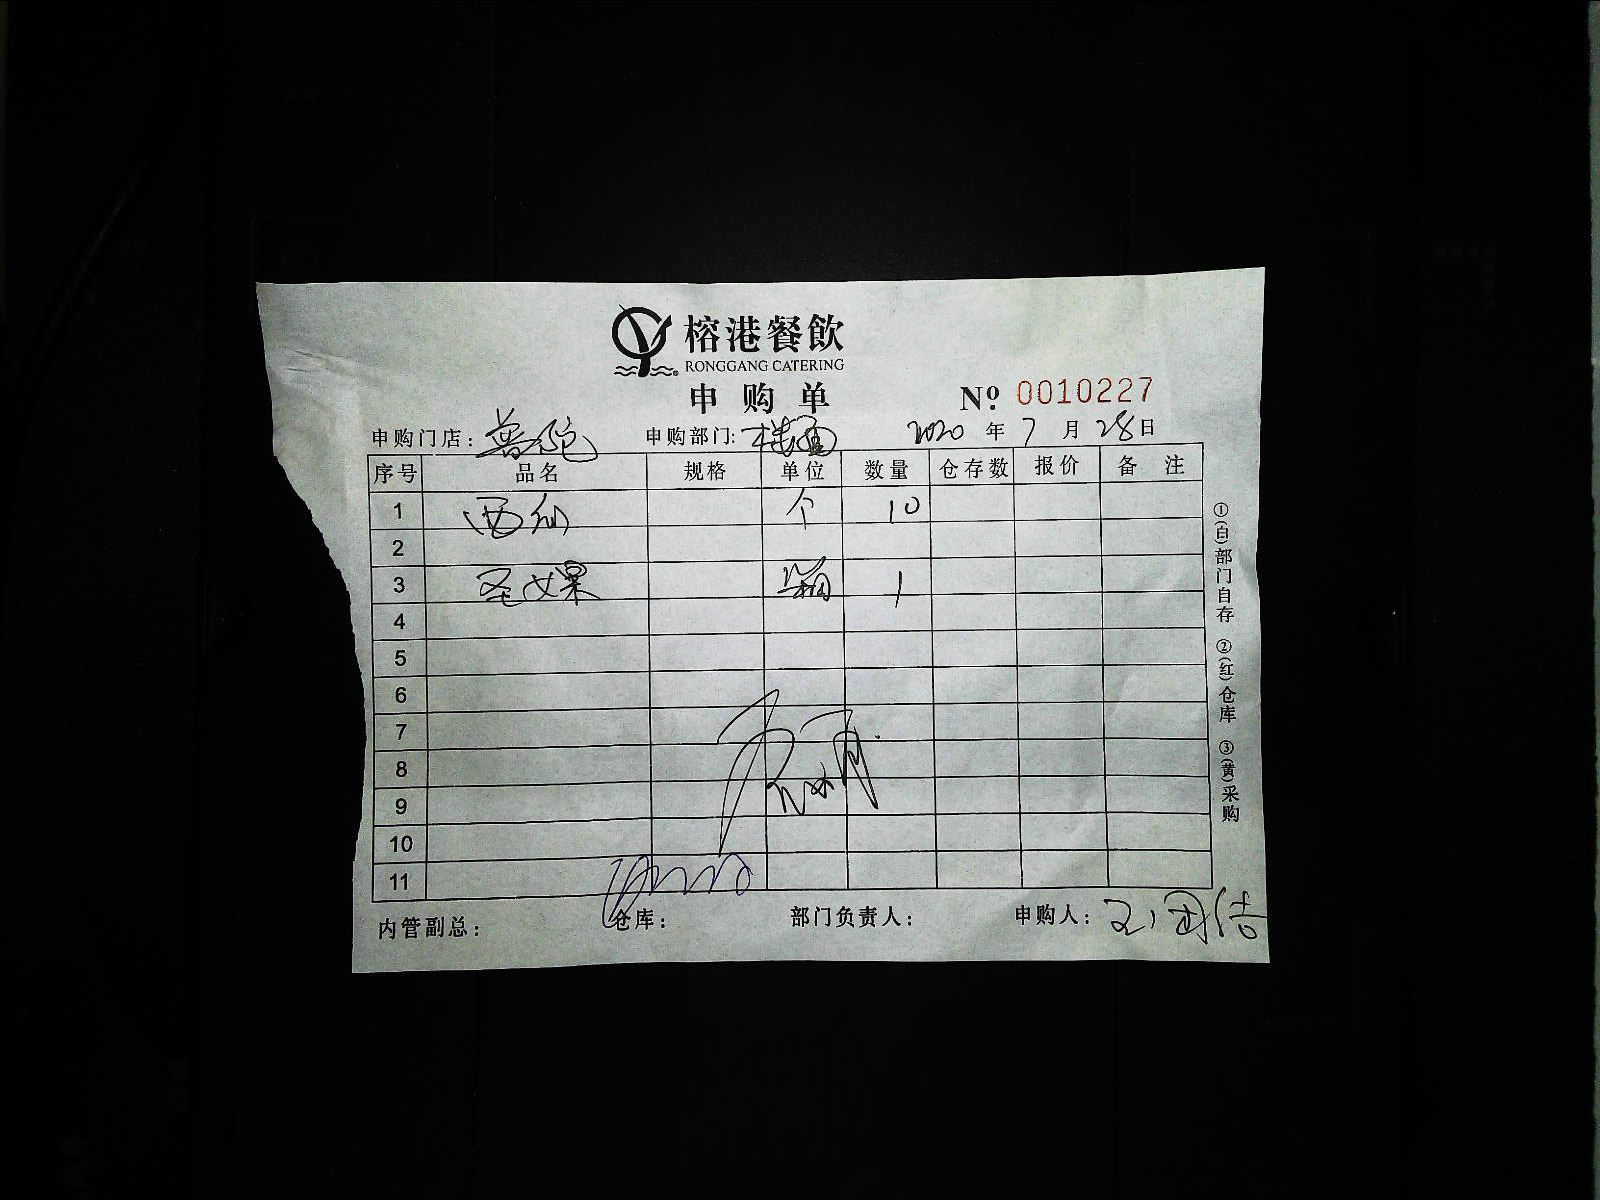 榕港餐飲
RONGGANG CATERING
申购单
№ 0010227
申购门店：普陀 申购部门：楼面 2020 年 7 月 28 日
序号 品名 规格 单位 数量 仓存数 报价 备 注
1 个 10
2
3 圣女果 箱 1
4
5
6
7
8
9
10
11
内管副总： 仓库： 部门负责人： 申购人：
①(白)部门自存 ②(红)仓库 ③(黄)采购